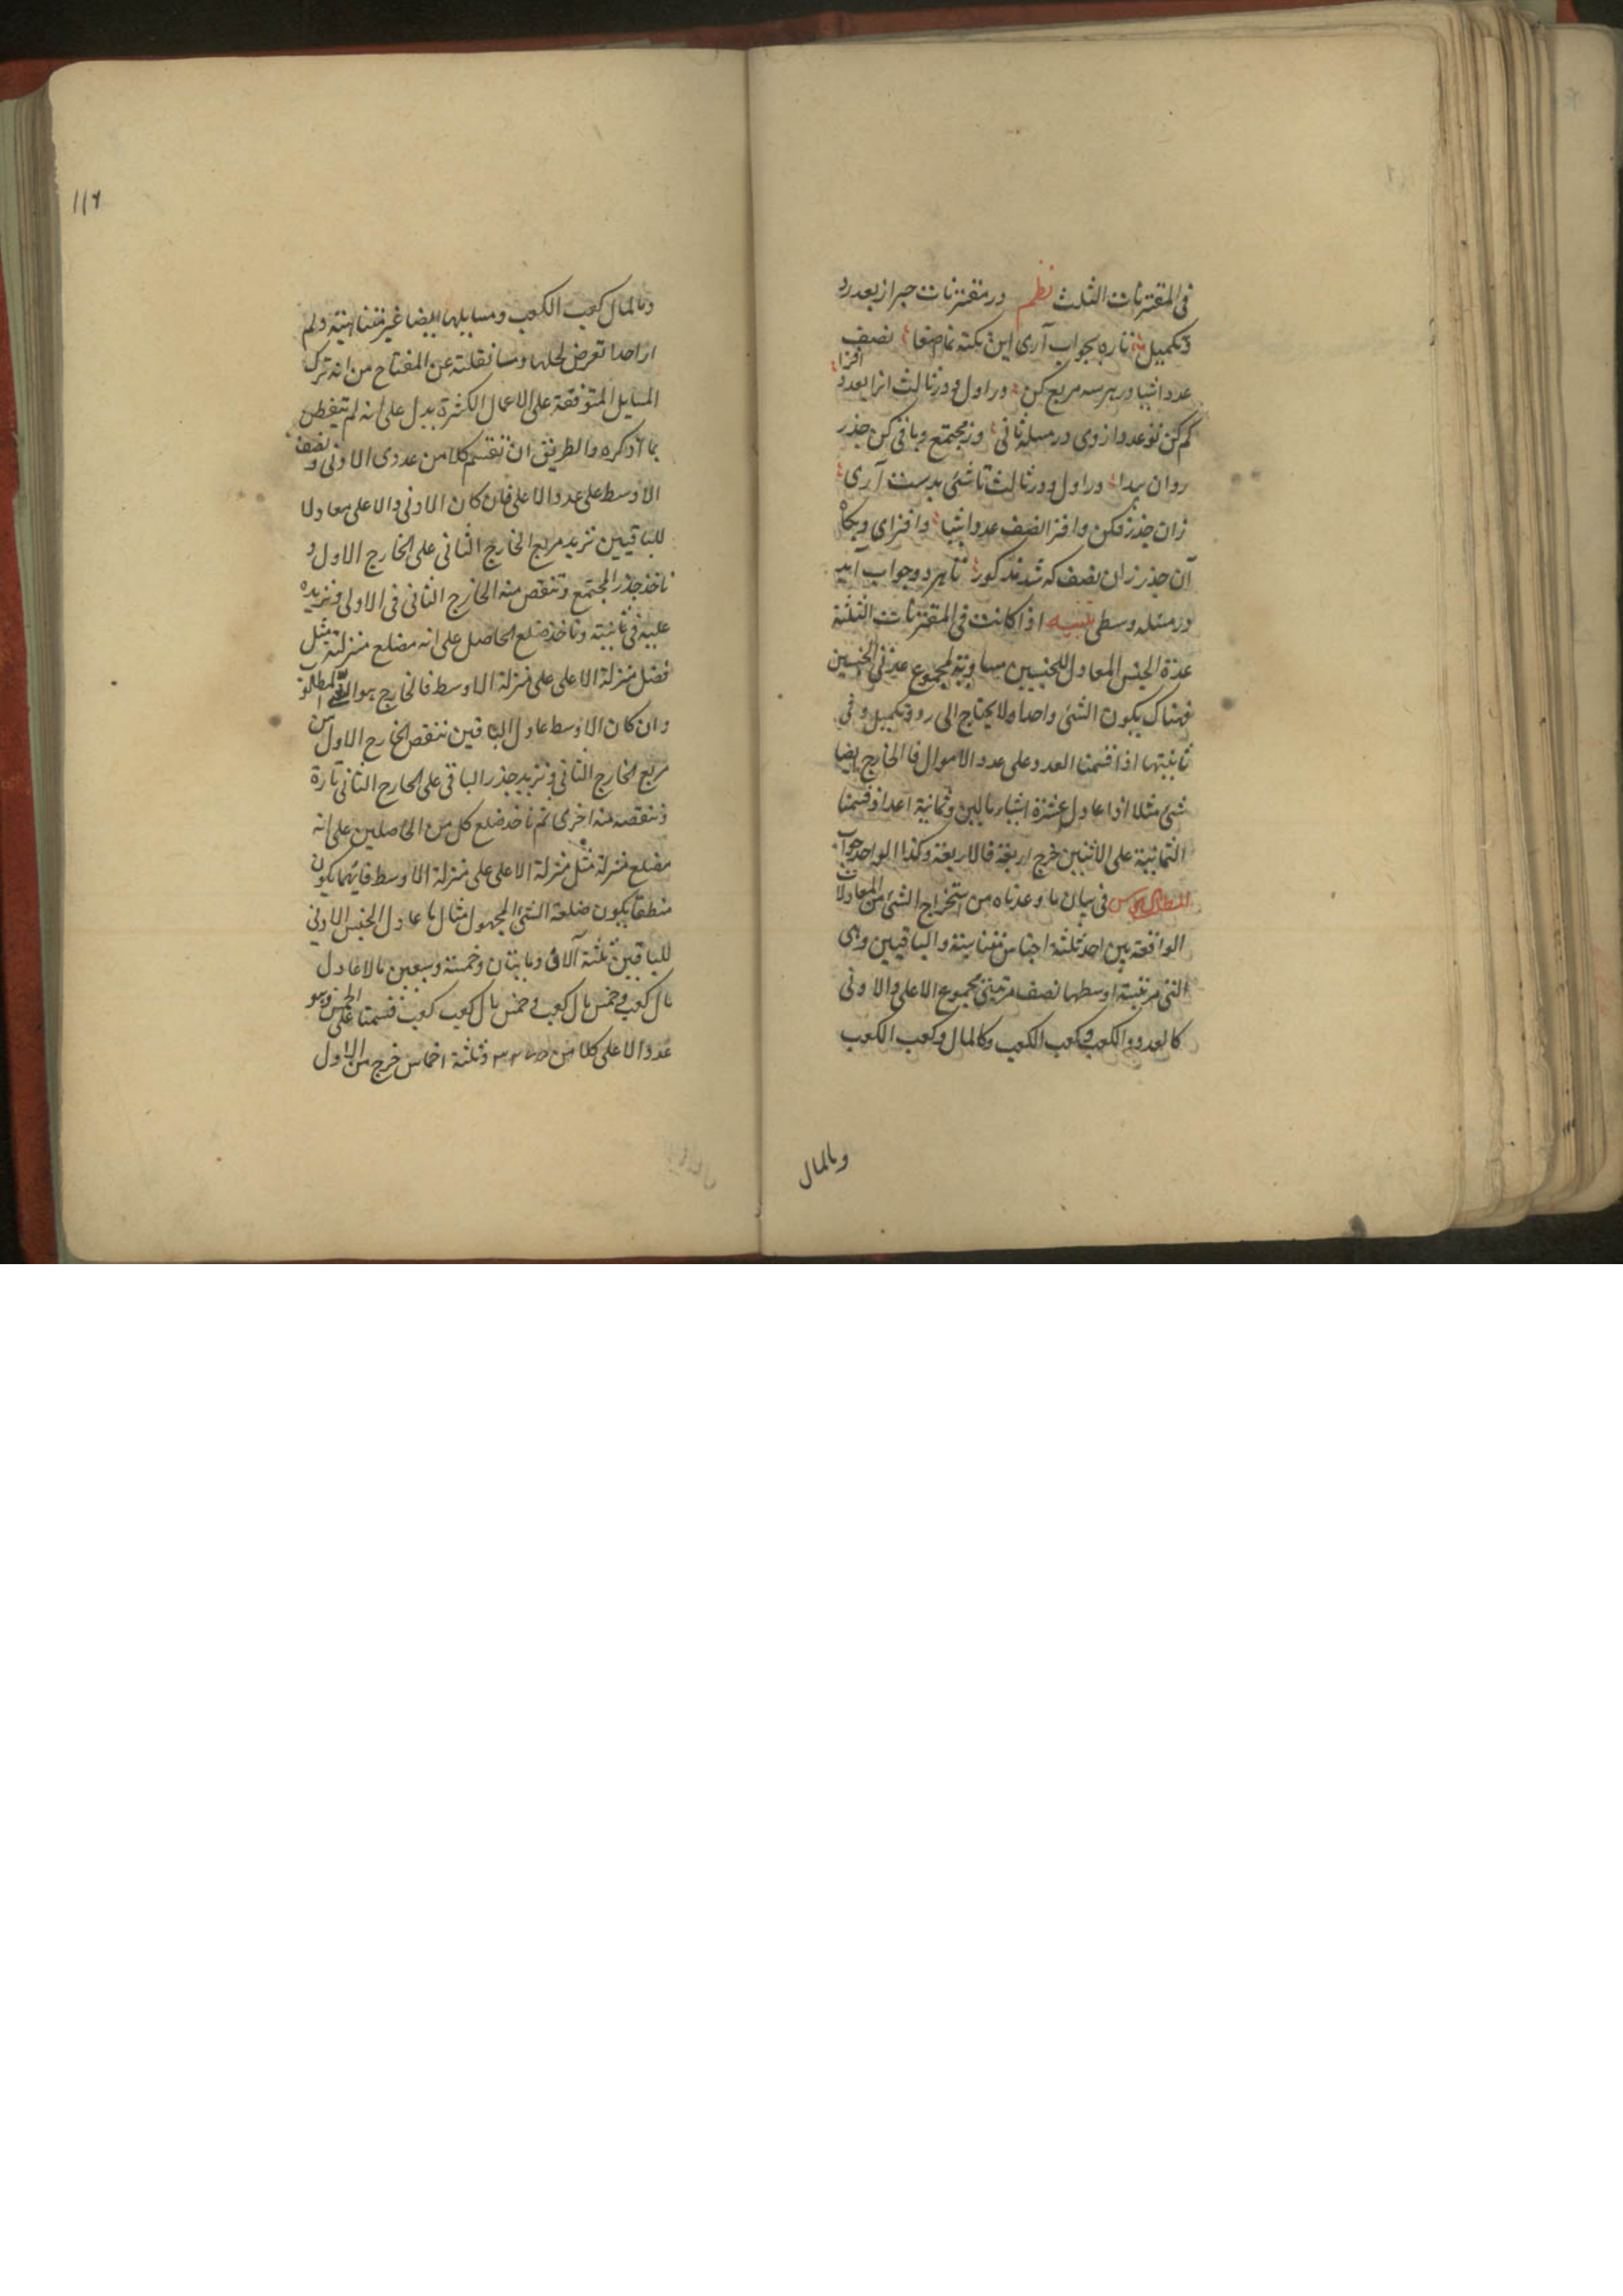 فی المقترنات الثلث نظم در مقترنات جبر از بعد رد
و تکمیل تا ره بجواب آری این نکته نما صغا نصف
عدد اشیا در هر سه مربع کن در اول و در ثالث انرا بعدد افزا
کم کن تو عدد از وی در مسئله ثانی وز مجتمع و باقی کن جذر
روان پیدا در اول و در ثالث تا شئی بدست آری
زان جذر فکن و افزا نصف عدد اشیا و افزای و بکاه
آن جذر زان نصف که شد مذکور تا هر دو جواب آید
در مسئله وسطی تنبیه اذا کانت فی المقترنات الثلثة
عدة الجنس المعادل للجنسین مساویة لمجموع عدتی الجنسین
فهناک یکون الشئ واحدا و لا یحتاج الی رد و تکمیل و فی
ثانیتها اذا قسمنا العدد علی عدد الاموال فالخارج ایضا
شئ مثلا اذا عادل عشرة اشیاء مالین و ثمانیة اعداد قسمنا
الثمانیة علی الاثنین خرج اربعة فالاربعة و کذا الواحد جواب
المطلب الخامس فی بیان ما وعدناه من استخراج الشئ من المعادلات
الواقعة بین احد ثلثة اجناس متناسبة و الباقیین و هی
التی مرتبة اوسطها نصف مرتبتی مجموع الاعلی و الادنی
کالعدد و الکعب و کعب الکعب و کالمال و کعب الکعب
و مال
۱۱۶
و مال مال کعب الکعب و مسایلها ایضا غیر متناهیة و لم
ار احدا تعرض لحلها و ما نقلته عن المفتاح من انه ترک
المسایل المتوقفة علی الاعمال الکثیرة یدل علی انه لم یتفطن
بما اذکره و الطریق ان تقسم کلا من عددی الادنی و نصف
الاوسط علی عدد الاعلی فان کان الادنی و الاعلی معادلا
للباقیین تزید مربع الخارج الثانی علی الخارج الاول و
تاخذ جذر المجتمع و تنقص منه الخارج الثانی فی الاولی و تزیده
علیه فی ثانیته و تاخذ ضلع الحاصل علی انه مضلع منزلته مثل
فضل منزلة الاعلی علی منزلة الاوسط فالخارج هو الشئ المطلوب
و ان کان الاوسط عادل الباقیین تنقص الخارج الاول من
مربع الخارج الثانی و تزید جذر الباقی علی الخارج الثانی تارة
و تنقصه منه اخری ثم تاخذ ضلع کل من الحاصلین علی انه
مضلع منزلة مثل منزلة الاعلی علی منزلة الاوسط فایهما یکون
منطقا یکون ضلعه الشئ المجهول مثال ما عادل الجنس الادنی
للباقیین ثلثة آلاف و مایتان و خمسة و سبعین مالا عادل
مال کعب و خمس مال کعب و خمس مال کعب کعب فقسمنا علی الخمس و هو
عدد الاعلی کلا من ۳۲۷۵ و ثلثة اخماس خرج من الاول